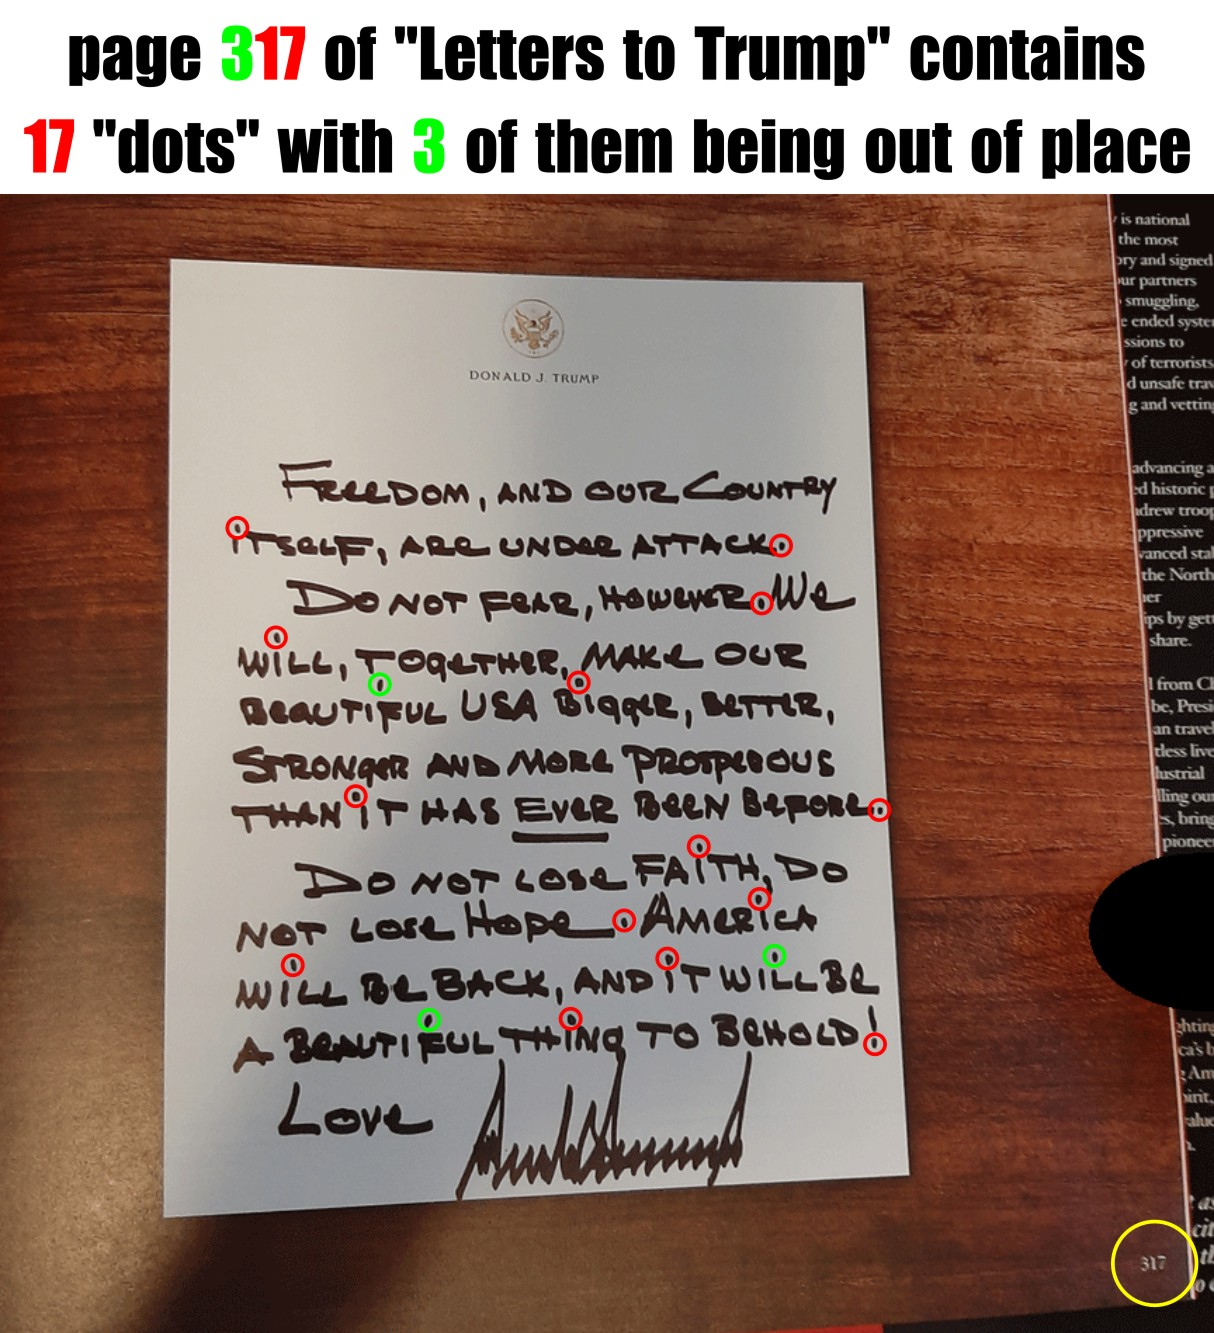 page 317 of "Letters to Trump" contains
17 "dots" with 3 of them being out of place
DONALD J. TRUMP
FREEDOM, AND OUR COUNTRY
ITSELF, ARE UNDER ATTACK.
DO NOT FEAR, HOWEVER. WE
WILL, TOGETHER, MAKE OUR
BEAUTIFUL USA BIGGER, BETTER,
STRONGER AND MORE PROSPEROUS
THAN IT HAS EVER BEEN BEFORE.
DO NOT LOSE FAITH, DO
NOT LOSE HOPE. AMERICA
WILL BE BACK, AND IT WILL BE
A BEAUTIFUL THING TO BEHOLD!
LOVE
is national
the most
ory and signed
our partners
smuggling,
ended syste
ssions to
of terrorists
d unsafe trav
g and vetting
advancing a
ed historic
drew troop
ppressive
vanced stal
the North
ips by gett
share.
from Ch
be, Presi
an trave
tless live
lustrial
lling ou
s, bring
pionee
317